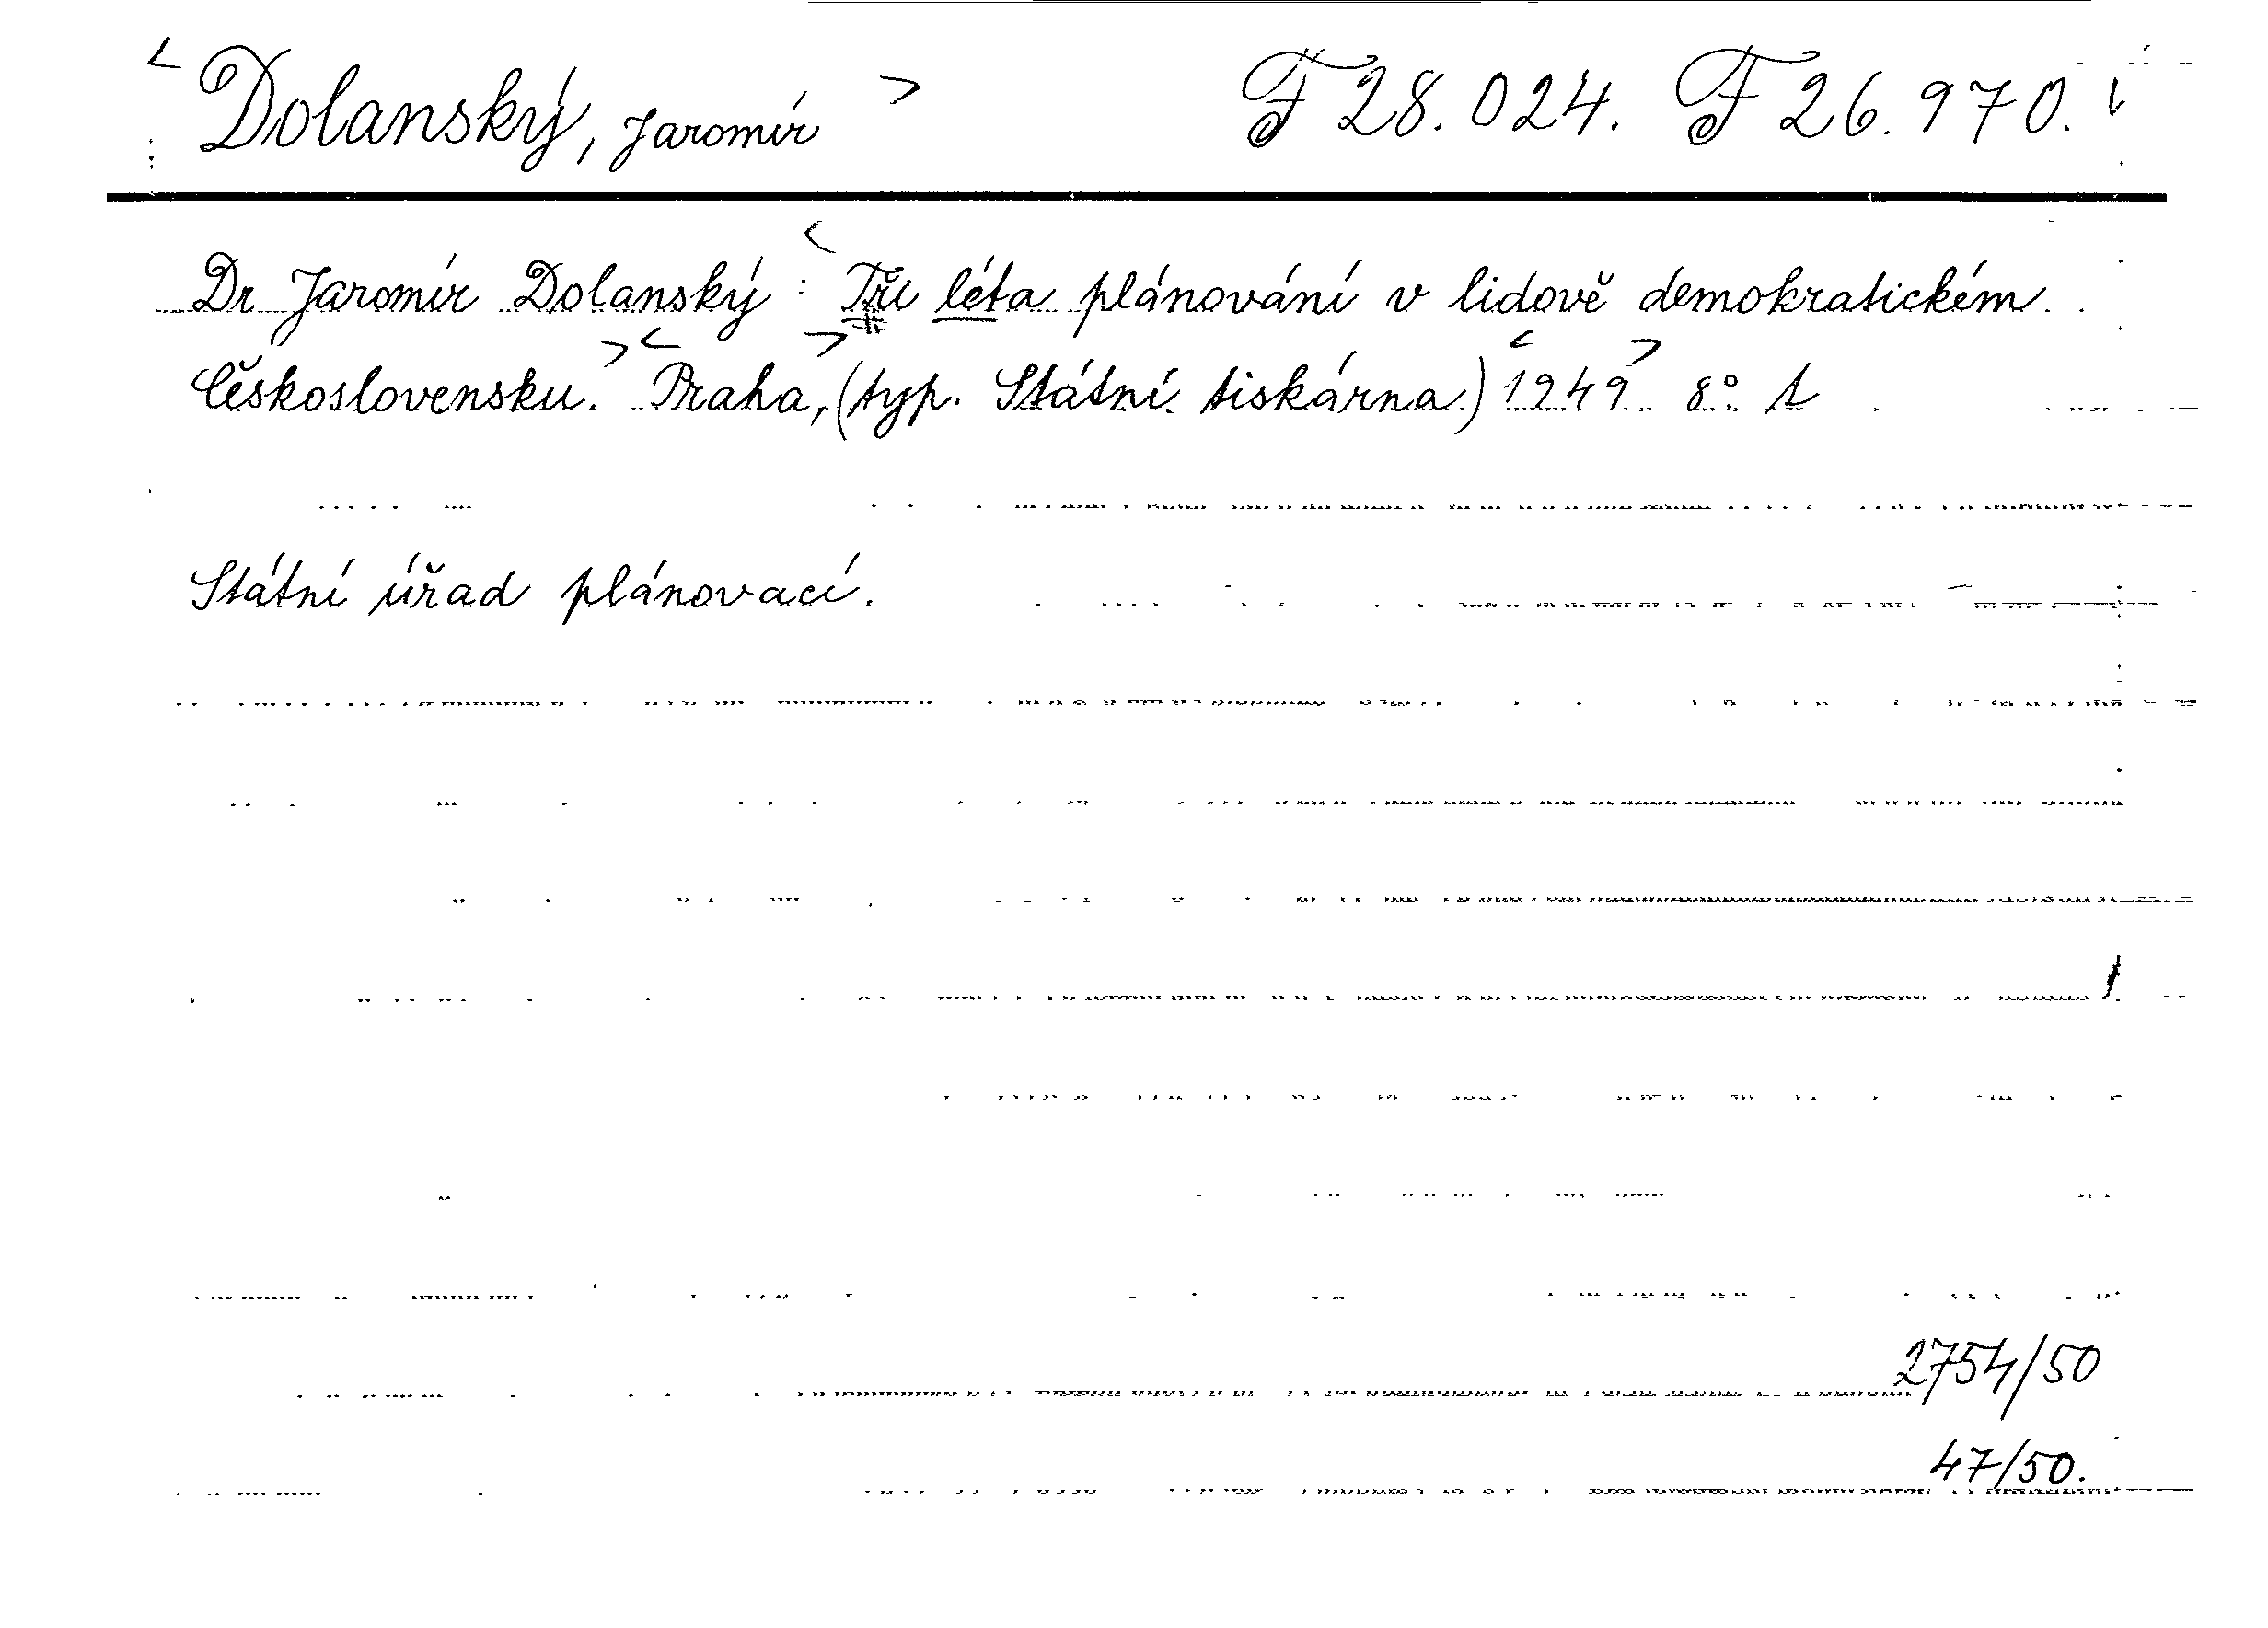 Dolanský, Jaromír F 28.024. F 26.970.
Dr Jaromír Dolanský: Tři léta plánování v lidově demokratickém
Československu. Praha, (typ. Státní tiskárna.) 1949 8°
Státní úřad plánovací.
2754/50
47/50.